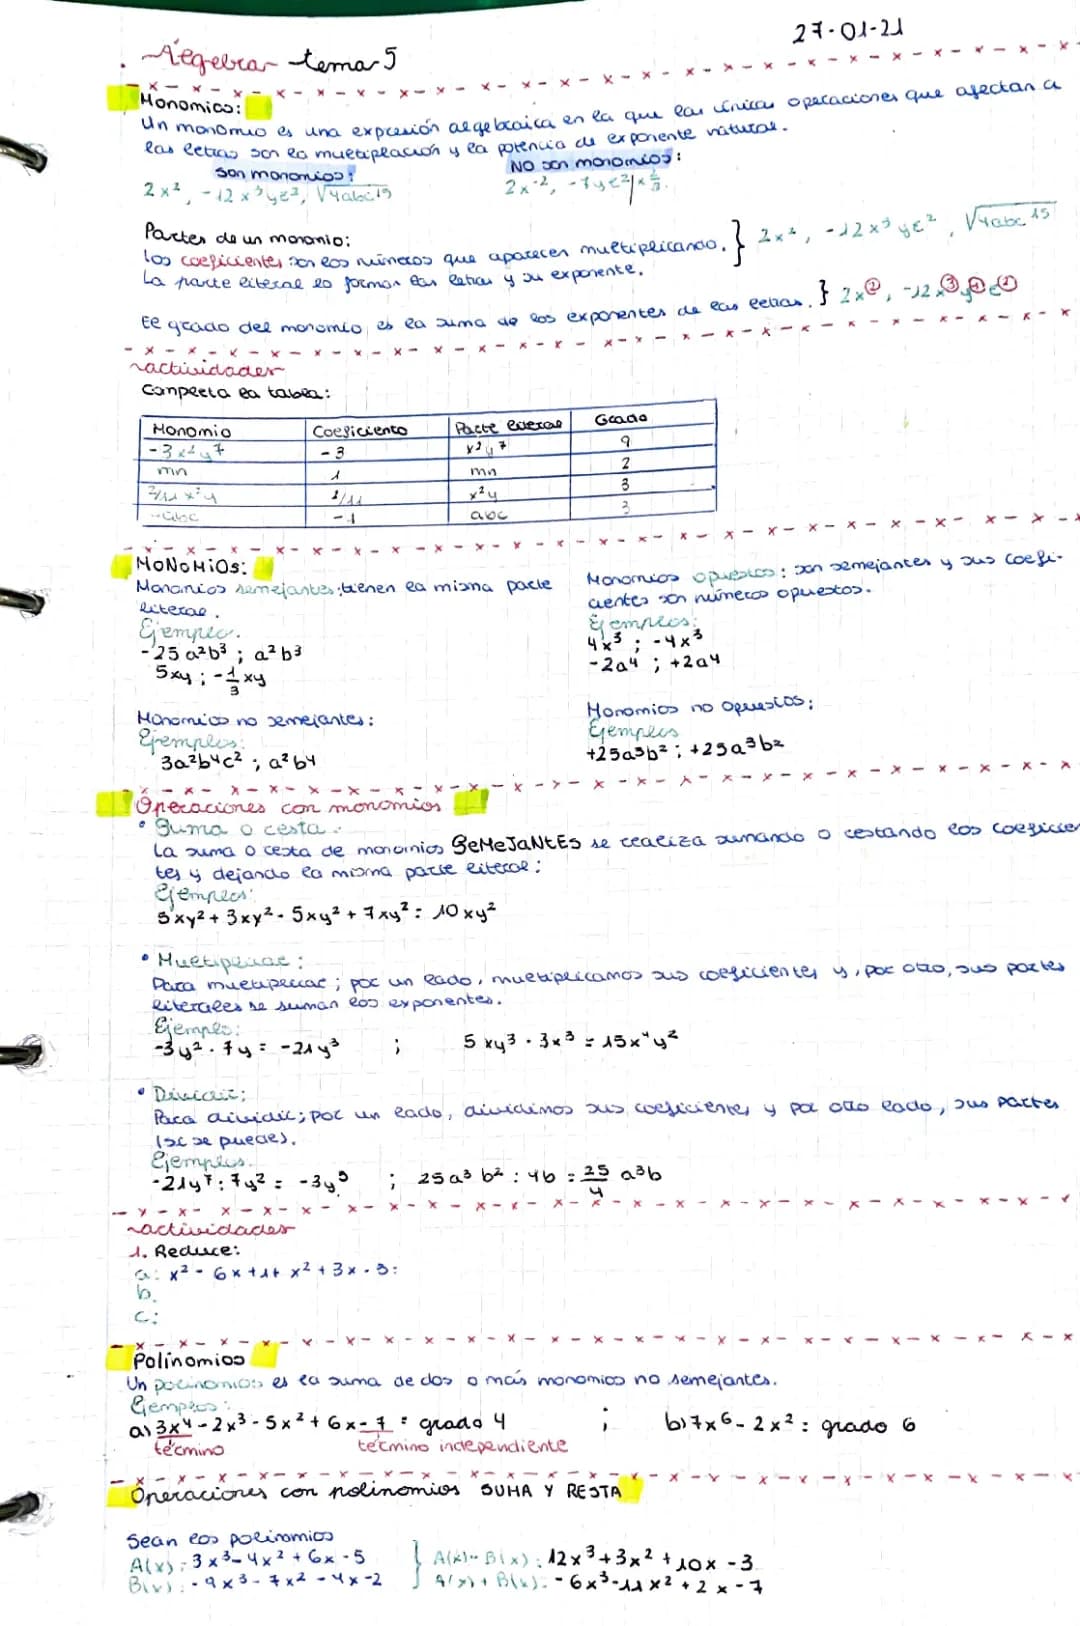 27-01-21
Algebra tema 5
Monomios:
Un monomio es una expresión algebraica en la que las únicas operaciones que afectan a
las letras son la multiplicación y la potencia de exponente natural.
Son monomios: NO son monomios:
2x², -12x³yz²,
Partes de un monomio:
los coeficientes son los números que aparecen multiplicando. } 2x², -12x³yz², √4abc¹⁵
La parte literal lo forman las letras y su exponente.
El grado del monomio, es la suma de los exponentes de las letras. } 2x②, -12x③y①z②
actividades
Completa la tabla:
Monomio Coeficiente Parte literal Grado
-3x²y⁷ -3 x²y⁷ 9
mn 1 mn 2
2/11 x²y 2/11 x²y 3
-abc -1 abc 3
MONOMIOS:
Monomios semejantes: tienen la misma parte
literal.
Ejemplo.
-25a²b³ ; a²b³
5xy ; -1/3 xy
Monomios no semejantes:
Ejemplos:
3a²b⁴c² ; a²b⁴
Monomios opuestos: son semejantes y sus coefi-
cientes son números opuestos.
Ejemplos:
4x³ ; -4x³
-2a⁴ ; +2a⁴
Monomios no opuestos:
Ejemplos
+25a³b² ; +25a³b²
Operaciones con monomios
• Suma o resta:
La suma o resta de monomios SEMEJANTES se realiza sumando o restando los coeficien
tes y dejando la misma parte literal:
Ejemplos:
5xy² + 3xy² - 5xy² + 7xy² = 10xy²
• Multiplicar:
Para multiplicar; por un lado, multiplicamos sus coeficientes y, por otro, sus partes
literales se suman los exponentes.
Ejemplo:
-3y² · 7y = -21y³ ; 5xy³ · 3x³ = 15x⁴y²
• Dividir:
Para dividir; por un lado, dividimos sus coeficientes y por otro lado, sus partes
(si se puede).
Ejemplos.
-21y⁷ : 7y² = -3y⁵ ; 25a³b² : 4b = 25/4 a³b
actividades
1. Reduce:
a: x² - 6x + 1 + x² + 3x - 3:
b.
c:
Polinomios
Un polinomios es la suma de dos o más monomios no semejantes.
Ejemplos:
a) 3x⁴ - 2x³ - 5x² + 6x - 7 = grado 4 ; b) 7x⁶ - 2x² = grado 6
término término independiente
Operaciones con polinomios SUMA Y RESTA
Sean los polinomios
A(x): 3x³ - 4x² + 6x - 5 } A(x) - B(x): 12x³ + 3x² + 10x - 3
B(x): -9x³ - 7x² - 4x - 2 A(x) + B(x): -6x³ - 11x² + 2x - 7